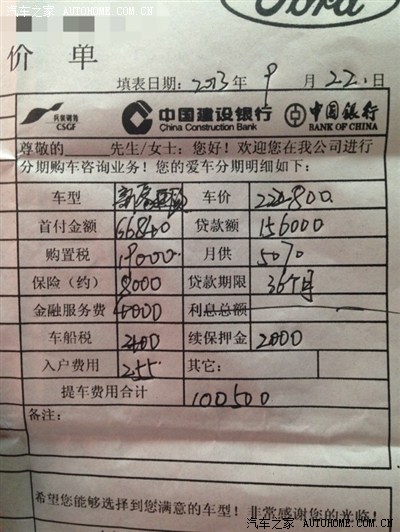 汽车之家 AUTOHOME.COM.CN
Ford
价 单
填表日期: 2013 年 9 月 22 日
CSGF 中国建设银行 China Construction Bank 中国银行 BANK OF CHINA
尊敬的 先生/女士: 您好! 欢迎您在我公司进行
分期购车咨询业务! 您的爱车分期明细如下:
车型 车价 222800
首付金额 66840 贷款额 156000
购置税 19000 月供 5070
保险（约） 8000 贷款期限 36个月
金融服务费 4000 利息总额
车船税 续保押金 2000
入户费用 255 其它:
提车费用合计 100500
备注:
希望您能够选择到您满意的车型! 非常感谢您的光临!
汽车之家 AUTOHOME.COM.CN